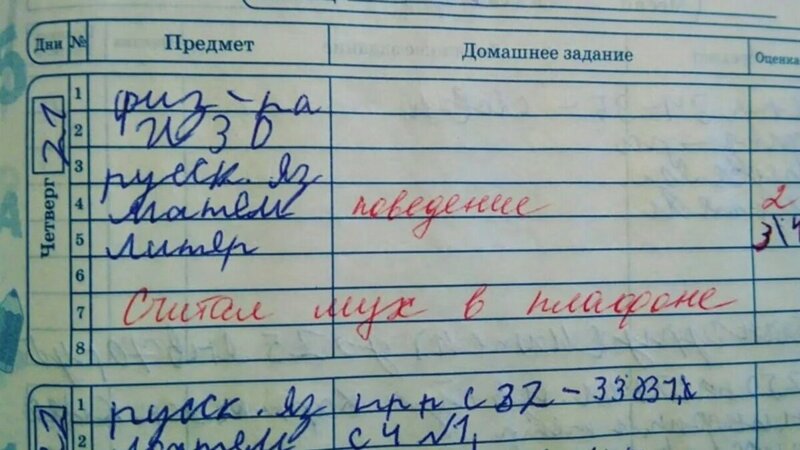 Дни № Предмет Домашнее задание Оценка
Четверг 21
1 физ-ра
2 ИЗО
3 русск. яз
4 матем поведение 2
5 литер 3\4
6
7 Считал мух в плафоне
8
1 русск. яз прр с 32-33
2 матем с 4 №1,